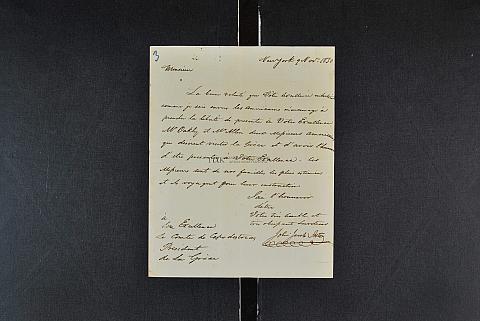 3
New York 9 Nov. 1830
Monsieur
La bonne volonté que Votre Excellence
envers les Americains m'encourage à
prendre la liberté de presenter à Votre Excellence
Mr Oakly & Mr Allen deux Messieurs Americains
qui desirent visiter la Grèce et d'avoir l'honneur
d'être presentés à Votre Excellence. Ces
Messieurs sont de nos familles les plus estimées
et ils voyagent pour leur instruction
J'ai l'honneur
d'etre
Votre très humble et
très obeissant Serviteur
John Jacob Astor
à
Son Excellence
Le Comte de Capo d'Istrias
President
de la Grèce